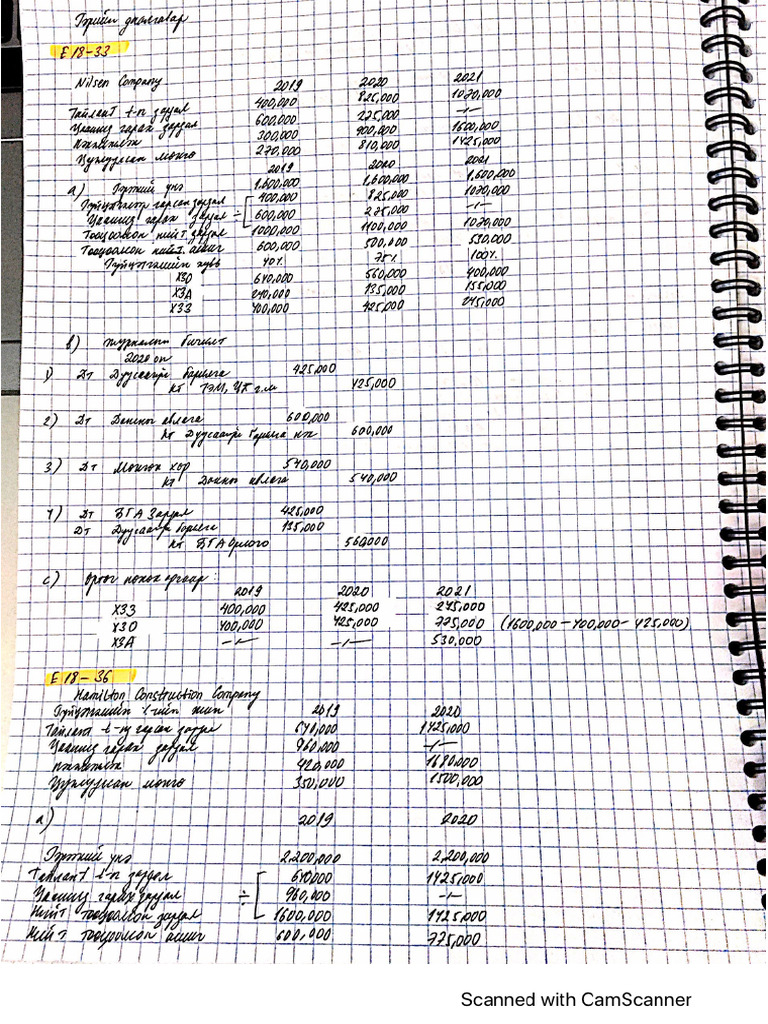 Гэрийн даалгавар
E 18-33
Nilsen Company 2019 2020 2021
Тайлант t-н зардал 400,000 825,000 1070,000
Цаашид гарах зардал 600,000 275,000 -"-
Нэхэмжлэх 300,000 900,000 1600,000
Цуглуулсан мөнгө 270,000 810,000 1425,000
2019 2020 2021
a) Гэрээний үнэ 1,600,000 1,600,000 1,600,000
гарсан зардал 400,000 825,000 1070,000
Цаашид гарах зардал ÷ 600,000 275,000 -"-
Тооцоолсон нийт зардал 1000,000 1100,000 1070,000
Тооцоолсон нийт ашиг 600,000 500,000 530,000
Гүйцэтгэлийн хувь 40% 75% 100%
ХЗО 640,000 560,000 400,000
ХЗА 240,000 135,000 155,000
ХЗЗ 400,000 425,000 245,000
b) Журналын бичилт
2020 он
1) Дт Дуусаагүй барилга 425,000
Кт ТЭМ, ЦХ г.м 425,000
2) Дт Дансны авлага 600,000
Кт Дуусаагүй барилга нэх 600,000
3) Дт Мөнгөн хөр 540,000
Кт Дансны авлага 540,000
4) Дт БГА Зардал 425,000
Дт Дуусаагүй барилга 135,000
Кт БГА Орлого 560,000
c) Өртөг нөхөх аргаар:
2019 2020 2021
ХЗЗ 400,000 425,000 245,000
ХЗО 400,000 425,000 775,000 (1600,000 - 400,000 - 425,000)
ХЗА -"- -"- 530,000
E 18-36
Hamilton Construction Company
Гүйцэтгэлийн 2019 2020
Тайлант t-нд гарсан зардал 640,000 1425,000
Цаашид гарах зардал 960,000 -"-
Нэхэмжлэх 420,000 1680,000
Цуглуулсан мөнгө 350,000 1500,000
a) 2019 2020
Гэрээний үнэ 2,200,000 2,200,000
Тайлант t-н зардал 640,000 1425,000
Цаашид гарах зардал ÷ 960,000 -"-
Нийт тооцоолсон зардал 1600,000 1425,000
Нийт тооцоолсон ашиг 600,000 775,000
Scanned with CamScanner